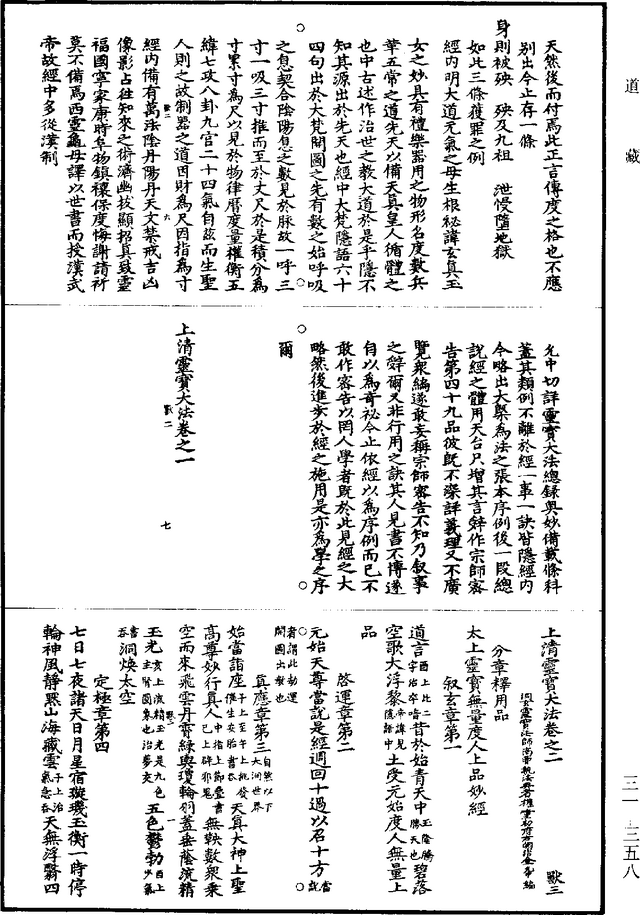 道藏
天然後而付焉此正言傳度之格也不應
別出今止存一條
身則被殃　殃及九祖　泄慢墮地獄
如此三條獲罪之例
經內明大道元氣之母生根祕諱玄真玉
女之妙具有禮樂器用之物形名度數兵
華五常之道先天以備天真皇人循體之
也中古述作治世之教大道於是乎隱不
知其源出於先天也經中大梵隱語六十
四句出於大梵開圖之先有數之始呼吸
之息契合陰陽息之數見於脉故一呼三
寸一吸三寸推而至於丈尺於是積分為
寸累寸為尺以見於物律曆度量權衡五
緯七政八卦九宮二十四氣自茲而生聖
人則之故制器之道因財為尺因指為寸
經內備有萬法陰丹陽丹天文禁戒吉凶
像影占往知來之術濟幽拔顯招真致靈
福國寧家康時阜物鎮禳保度悔謝請祈
莫不備焉西靈龜母譯以世書而授漢武
帝故經中多從漢制
允中切詳靈寶大法總錄奧妙備載條科
蓋其類例不離於經一事一訣皆隱經內
今略出大槩為法之張本序例後一段總
說經之體用天台只增其言辭作宗師密
告第四十九品彼既不深詳義理又不廣
覽衆編遂敢妄稱宗師密告不知乃叙事
之辭爾又非行用之訣其人見書不博遂
自以為奇祕今止依經以為序例而已不
敢作密告以罔人學者既於此見經之大
略然後進步於經之施用是亦為學之序
爾
上清靈寶大法卷之一
歎二　七
上清靈寶大法卷之二　　歎三
分章釋用品
太上靈寶無量度人上品妙經
叙玄章第一
道言酉上比二字治卒暗昔於始青天中玉隆騰勝天也碧落
空歌大浮黎帝諱見隱語中土受元始度人無量上
品
啓運章第二
元始天尊當說是經週回十過以召十方當說
者謂此劫運開圖出世也
真應章第三自然以下大洞世界
始當詣座天真大神上聖
高尊妙行真人無鞅數衆乘
空而來飛雲丹霄綠輿瓊輪羽蓋垂蔭流精
玉光五色鬱勃
洞煥太空
定極章第四
七日七夜諸天日月星宿璇璣玉衡一時停
輪神風靜默山海藏雲天無浮翳四
三一—三五八